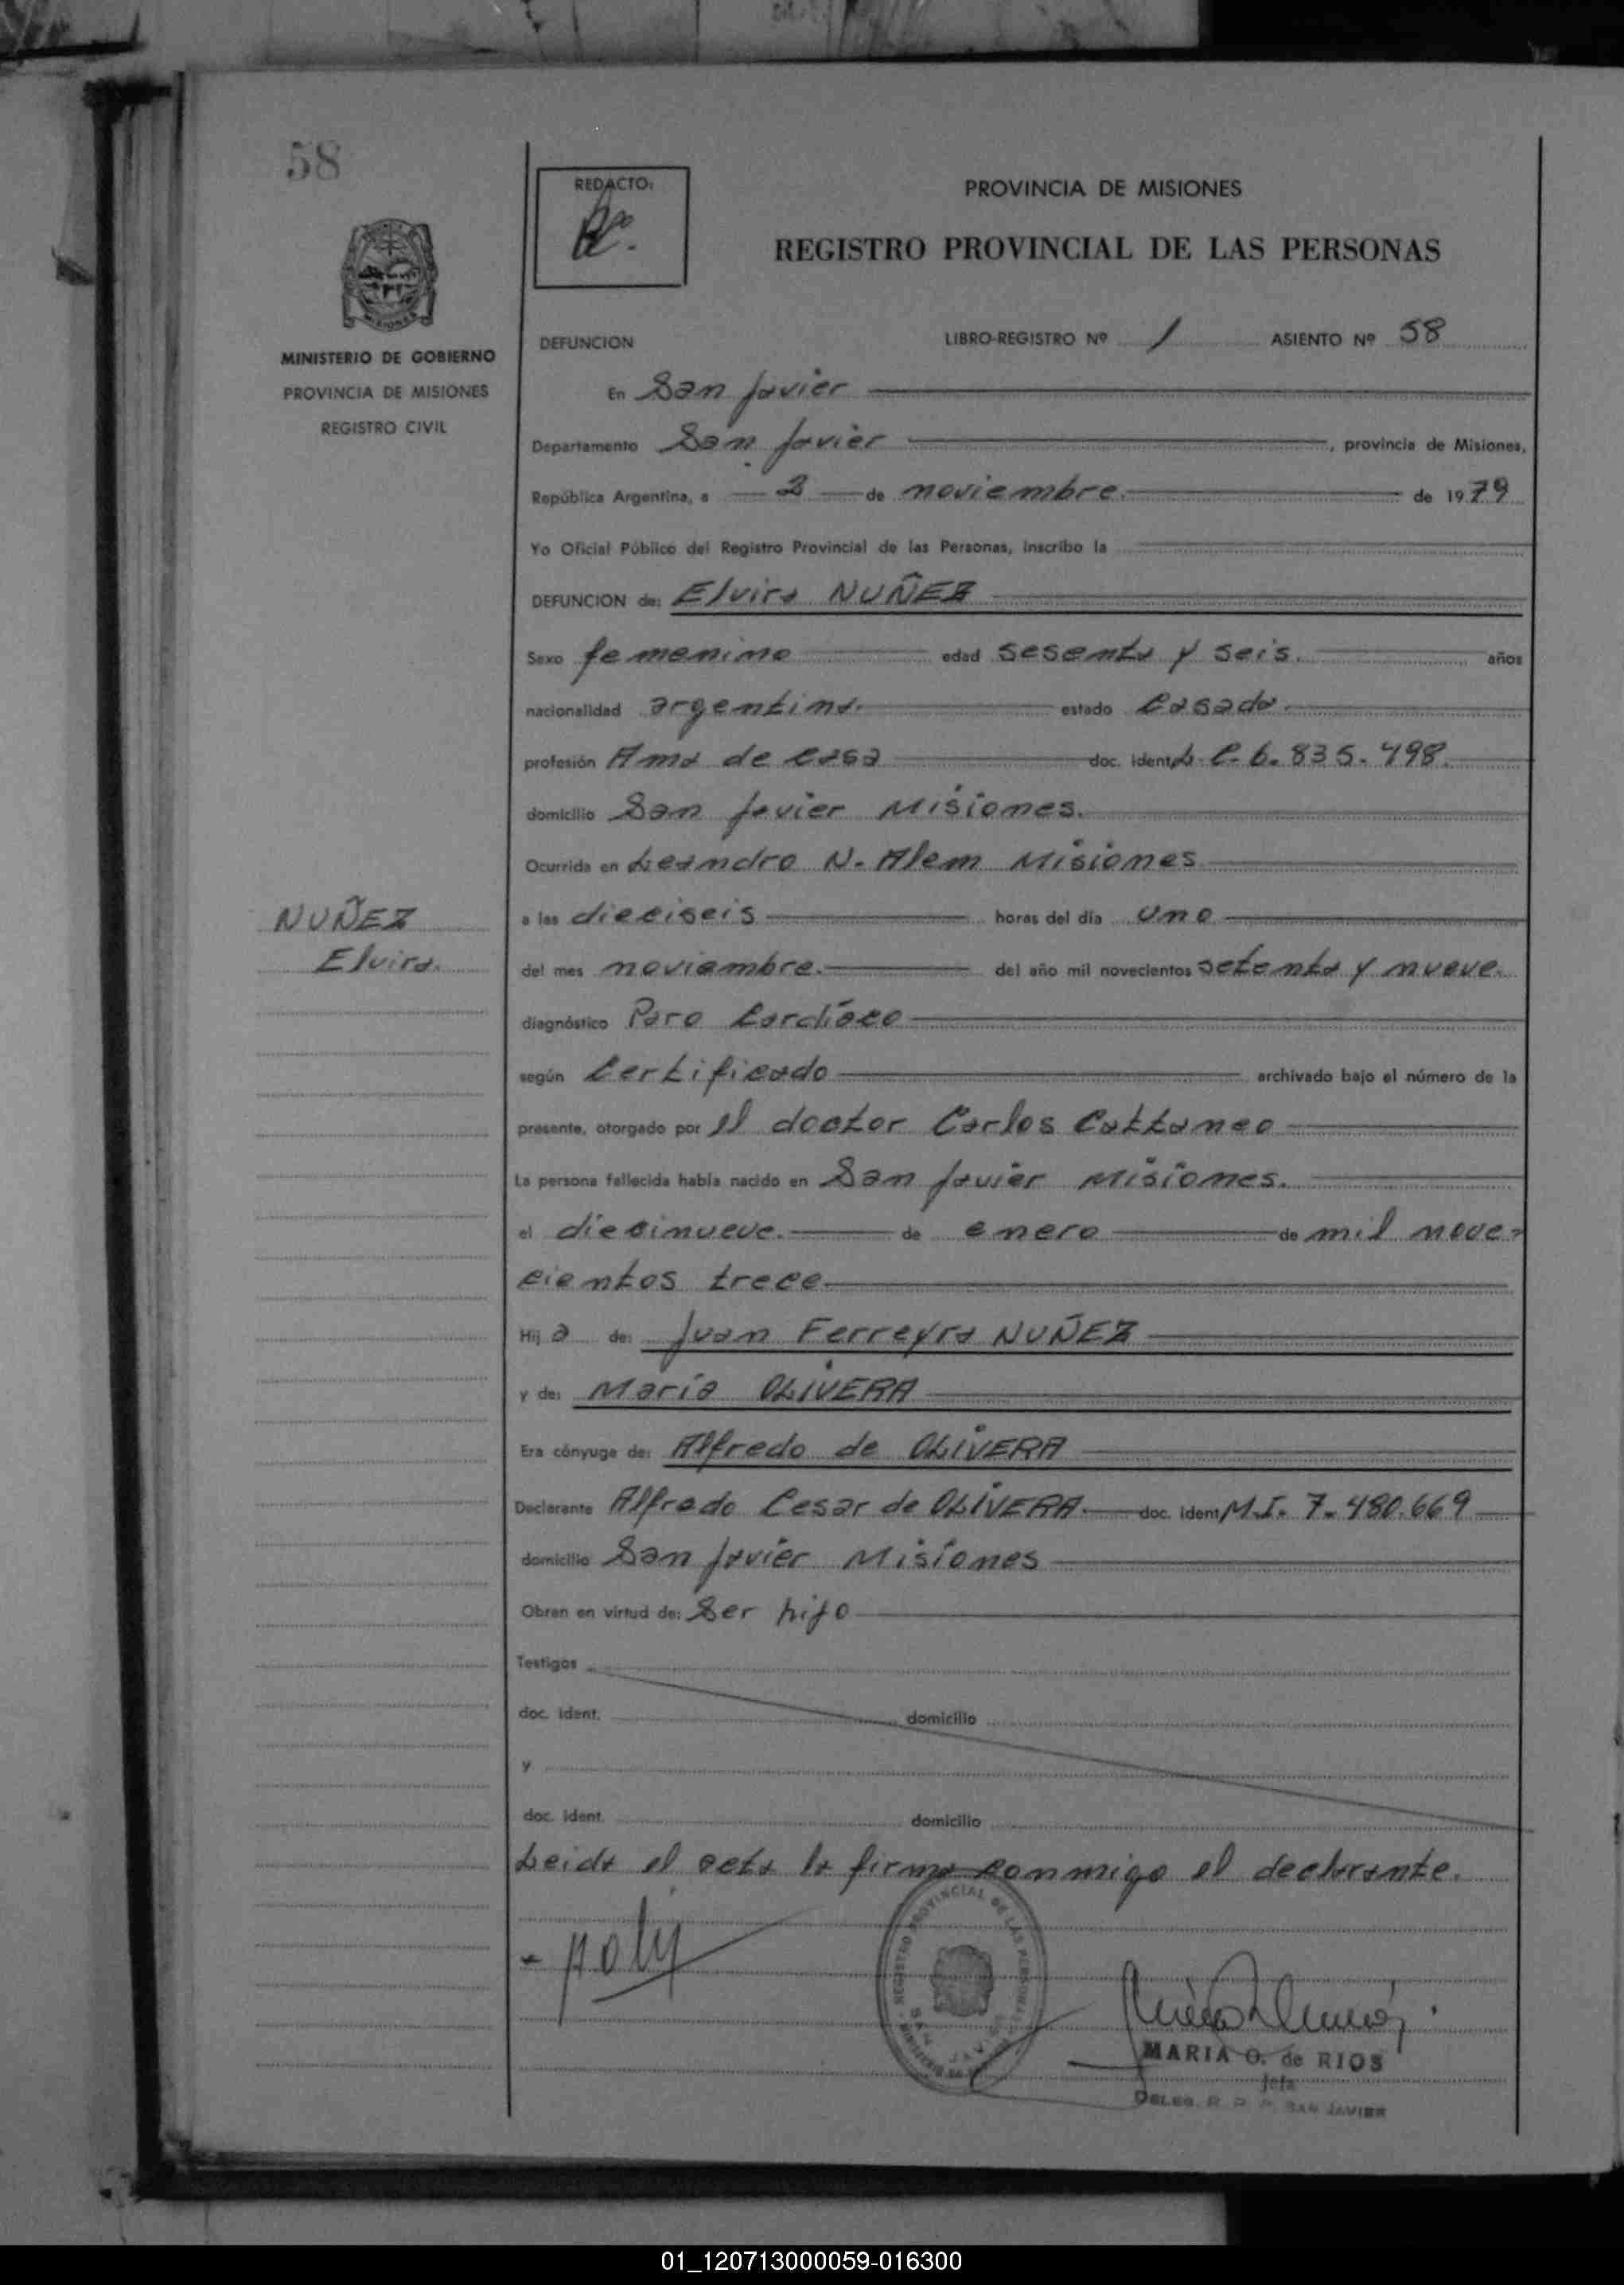 58
REDACTO:
PROVINCIA DE MISIONES
REGISTRO PROVINCIAL DE LAS PERSONAS
MISIONES
MINISTERIO DE GOBIERNO
PROVINCIA DE MISIONES
REGISTRO CIVIL
DEFUNCION LIBRO-REGISTRO Nº 1 ASIENTO Nº 58
En San Javier
Departamento San Javier, provincia de Misiones,
República Argentina, a 2 de noviembre de 1979
Yo Oficial Público del Registro Provincial de las Personas, inscribo la
DEFUNCION de: Elvira NUÑEZ
Sexo femenino edad sesenta y seis. años
nacionalidad argentina. estado Casada.
profesión Ama de casa doc. ident. L. C. 6.835.498.
domicilio San Javier Misiones.
Ocurrida en Leandro N. Alem Misiones
NUÑEZ
Elvira.
a las dieciseis horas del día uno
del mes noviembre. del año mil novecientos setenta y nueve.
diagnóstico Paro Cardíaco
según Certificado archivado bajo el número de la
presente, otorgado por el doctor Carlos Cattaneo
La persona fallecida había nacido en San Javier Misiones.
el diecinueve. de enero de mil nove-
cientos trece
Hij a de: Juan Ferreyra NUÑEZ
y de: María OLIVERA
Era cónyuge de: Alfredo de OLIVERA
Declarante Alfredo Cesar de OLIVERA doc. ident. M.I. 7.480.669
domicilio San Javier Misiones
Obran en virtud de: Ser hijo
Testigos
doc. ident. domicilio
y
doc. ident. domicilio
Leida el acta la firma conmigo el declarante.
REGISTRO PROVINCIAL DE LAS PERSONAS
SAN JAVIER
MARIA O. de RIOS
Jefa
DELEG. R. P. P. SAN JAVIER
01_120713000059-016300